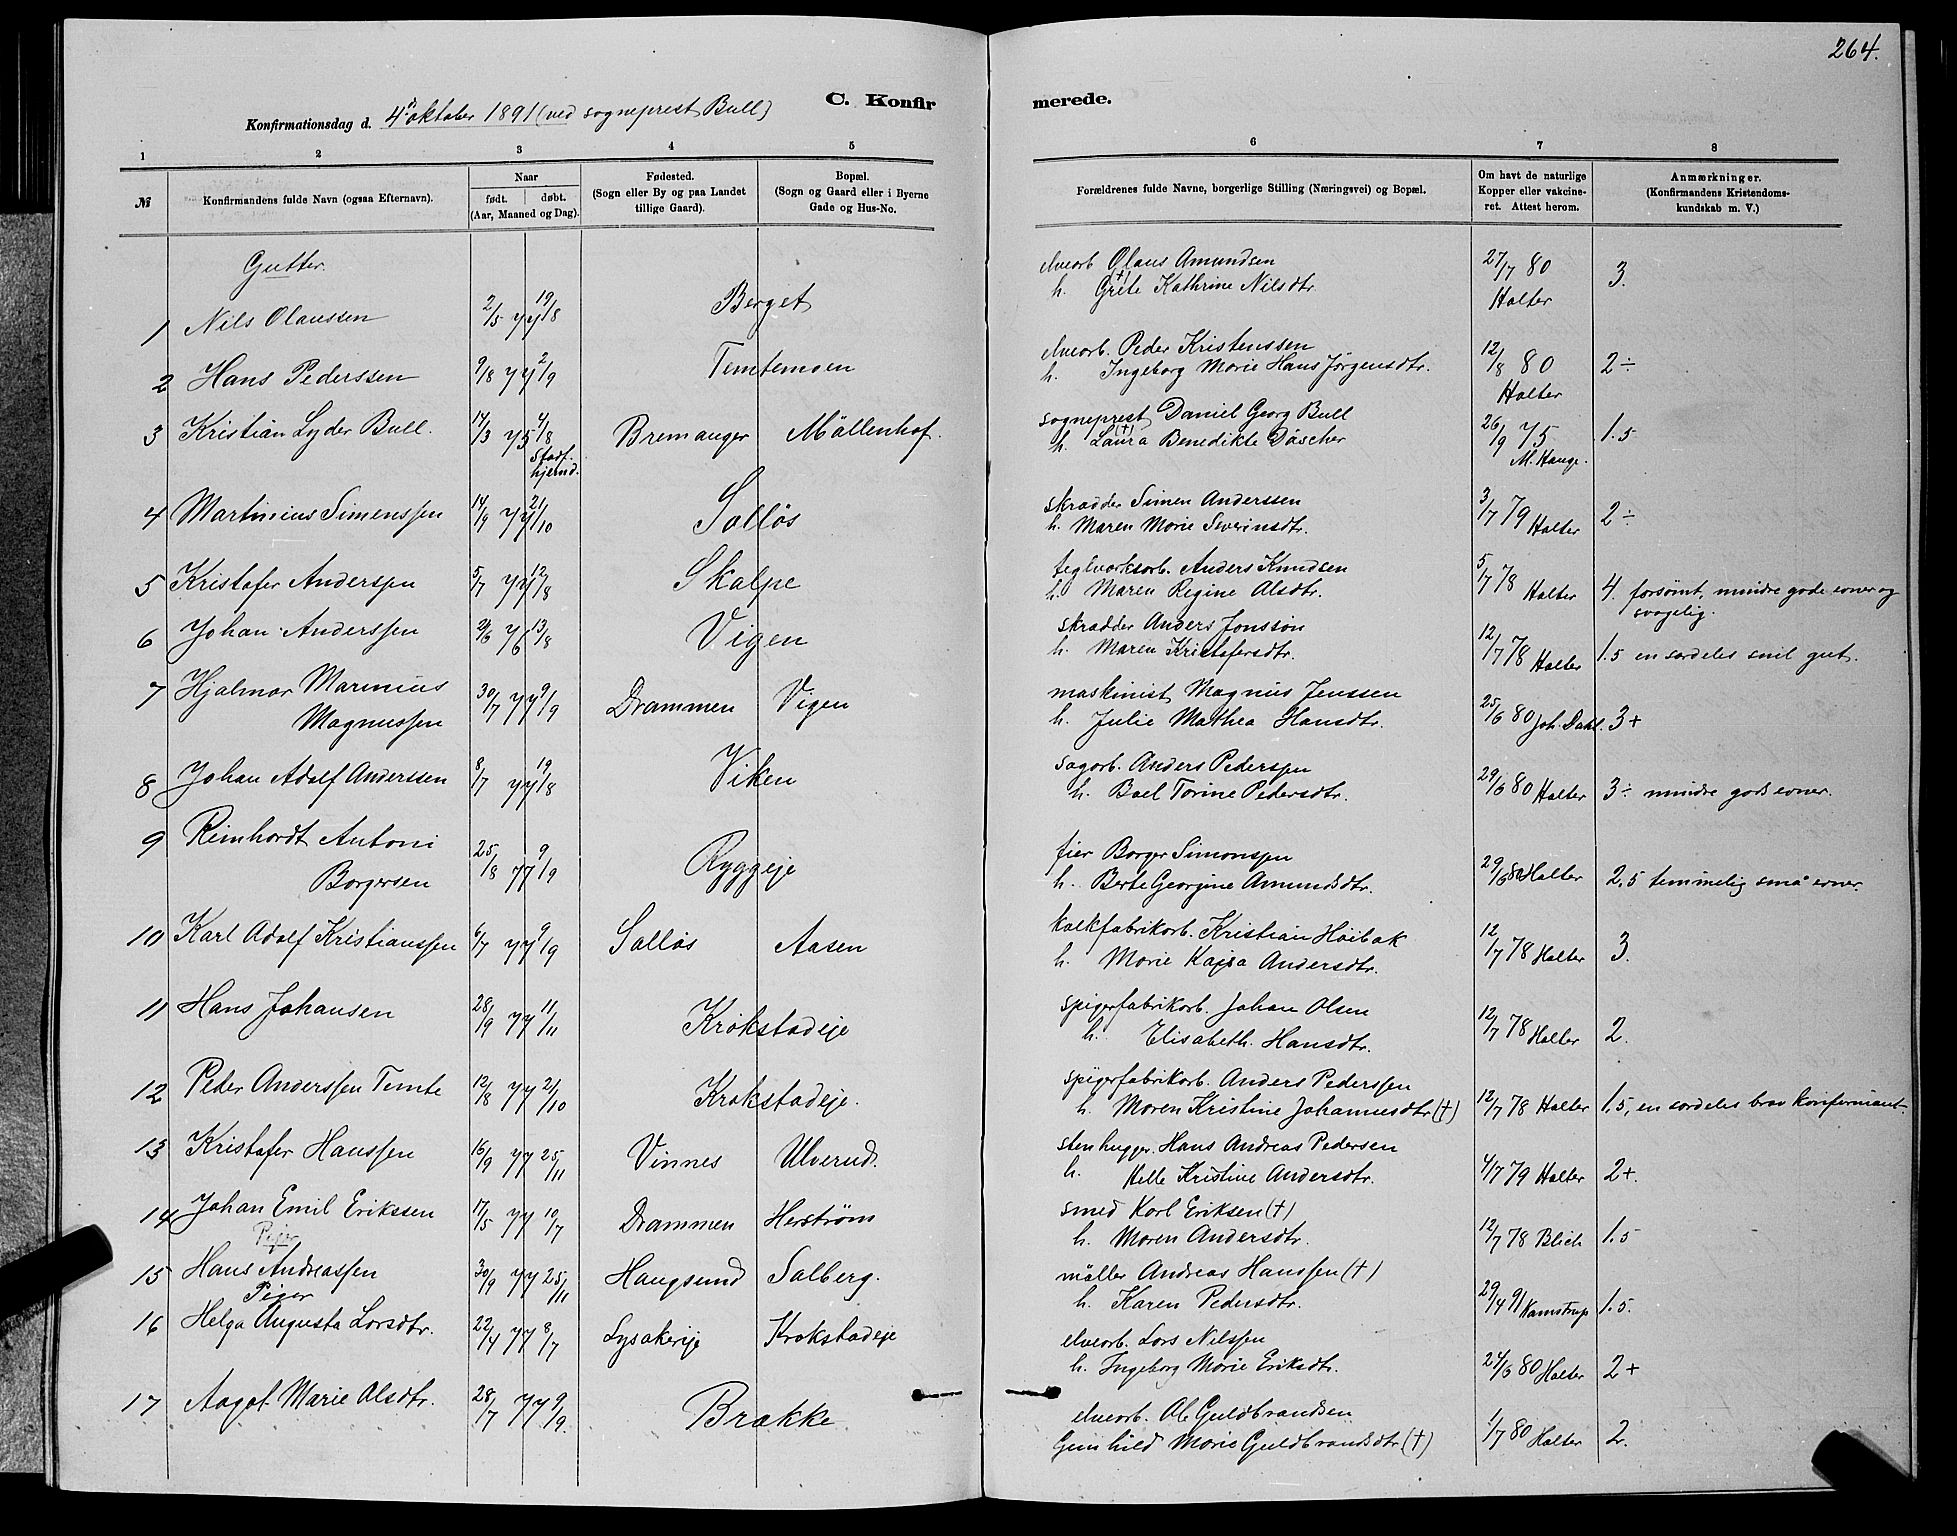 264.
C. Konfirmerede.
Konfirmationsdag d. 4de oktober 1891 (ved sogneprest Bull)
1 2 3 4 5 6 7 8
№ Konfirmandens fulde Navn (ogsaa Efternavn). Naar født. døbt. (Aar, Maaned og Dag). Fødested. (Sogn eller By og paa Landet tillige Gaard). Bopæl. (Sogn og Gaard eller i Byerne Gade og Hus-No. Forældrenes fulde Navne, borgerlige Stilling (Næringsvei) og Bopæl. Om havt de naturlige Kopper eller vakcineret. Attest herom. Anmærkninger. (Konfirmandens Kristendomskundskab m. V.)
Gutter.
1 Nils Olaussen 2/5 77 19/8 Berget elvearb. Olaus Amundsen
h. Grete (+) Kathrine Nilsdtr. 27/7 80 Halter 3.
2 Hans Pederssen 9/8 77 2/9 Temtemoen elvearb. Peder Kristenssen
h. Ingeborg Marie Hans Jørgensdtr. 12/8 80 Halter 2÷
3 Kristian Lyder Bull. 14/3 75 4/8 Stadf. hjemd. Bremanger Mällenhof. sogneprest Daniel Georg Bull
h. Laura (+) Benedikte Däscher 26/9 75 M. Hauge. 1.5
4 Martinius Simenssen 14/9 77 21/10 Solløs skrædder Simen Anderssen
h. Maren Marie Severinsdtr. 3/7 79 Halter 2÷
5 Kristofer Anderssen 5/7 77 12/8 Skalpe teglværksarb. Anders Knudsen
h. Maren Regine Olsdtr. 5/7 78 Halter 4. forsømt, mindre gode evner og svagelig.
6 Johan Anderssen 76 13/8 Vigen skrædder Anders Jonssøn
h. Maren Kristofersdtr. 12/7 78 Halter 1.5 en særdeles snil gut.
7 Hjalmar Marinius
Magnussen 30/7 77 9/9 Drammen Vigen maskinist Magnus Jenssen
h. Julie Mathea Hansdtr. 25/6 80 Joh. Dahl. 3+
8 Johan Adolf Anderssen 8/7 77 19/8 Viken sagarb. Anders Pederssen
h. Boel Torine Pedersdtr. 29/6 80 Halter 3÷ mindre gode evner.
9 Reinhardt Antoni
Borgersen 25/8 77 9/9 Ryggeje eier Borger Simonssen
h. Berte Georgine Amundsdtr. 29/6 80 Halter 2,5 temmelig små evner.
10 Karl Adolf Kristianssen 6/7 77 9/9 Solløs Aasen kalkfabrikarb. Kristian Høibak
h. Marie Kajsa Andersdtr. 12/7 78 Halter 3.
11 Hans Johansen 28/9 77 11/11 Krokstadeje spigerfabrikarb. Johan Olsen
h. Elisabeth. Hansdtr. 12/7 78 Halter 2.
12 Peder Anderssen Temte 12/8 77 21/10 Krokstadeje. spigerfabrikarb. Anders Pederssen
h. Maren Kristine Johannesdtr (+) 12/7 78 Halter 1,5, en særdeles brav konfirmant
13 Kristofer Hanssen 16/9 77 25/11 Vinnes Ulverud. stenhugger. Hans Andreas Pedersen
h. Helle Kristine Andersdtr. 4/7 79 Halter 2+.
14 Johan Emil Erikssen 17/5 77 10/7 Drammen Herstrøm smed Karl Eriksen (+)
h. Maren Andersdtr. 12/7 78 Blich 1.5
Piger
15 Hans Andreassen 30/9 77 25/11 Haugsund Solberg. møller Andreas Hanssen (+)
h. Karen Pedersdtr. 29/4 91 Kamstrup 1.5.
Piger
16 Helga Augusta Larsdtr. 22/4 77 8/7 Lysakereje Krokstadeje elvearb. Lars Nilssen
h. Ingeborg Marie Eriksdtr. 24/6 80 Halter 2+
17 Aagot Marie Olsdtr. 28/7 77 9/9. Brække elvearb. Ole Guldbrandsen
Gunhild Marie Guldbrandsdtr (+) 1/7 80 Halter 2.